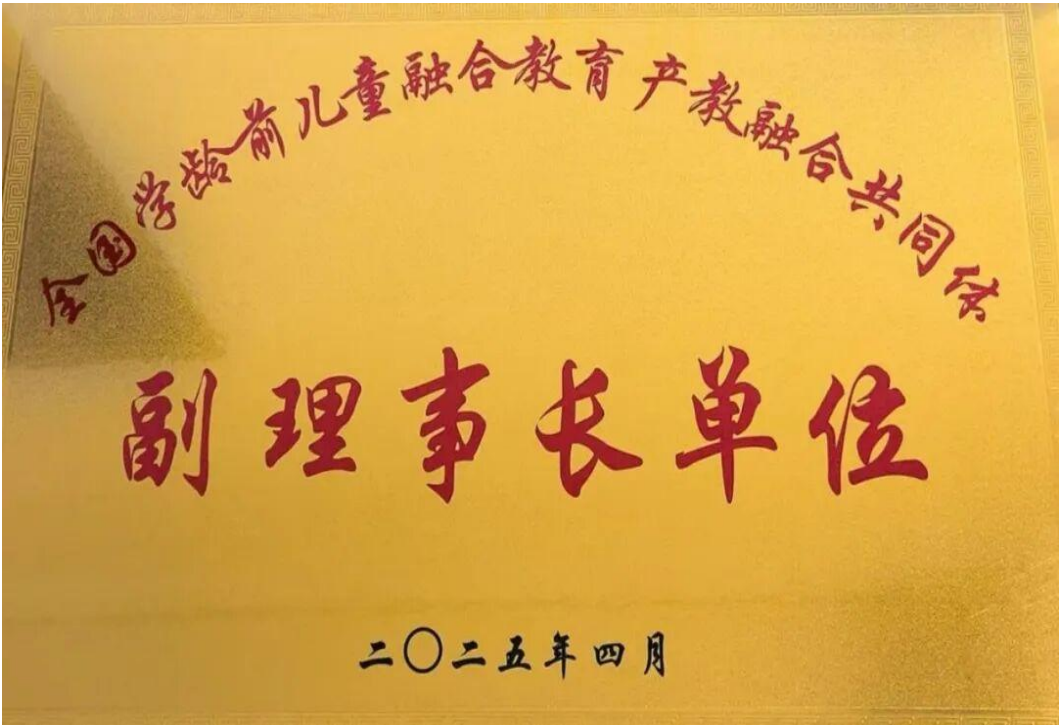 全国学龄前儿童融合教育产教融合共同体
副理事长单位
二〇二五年四月